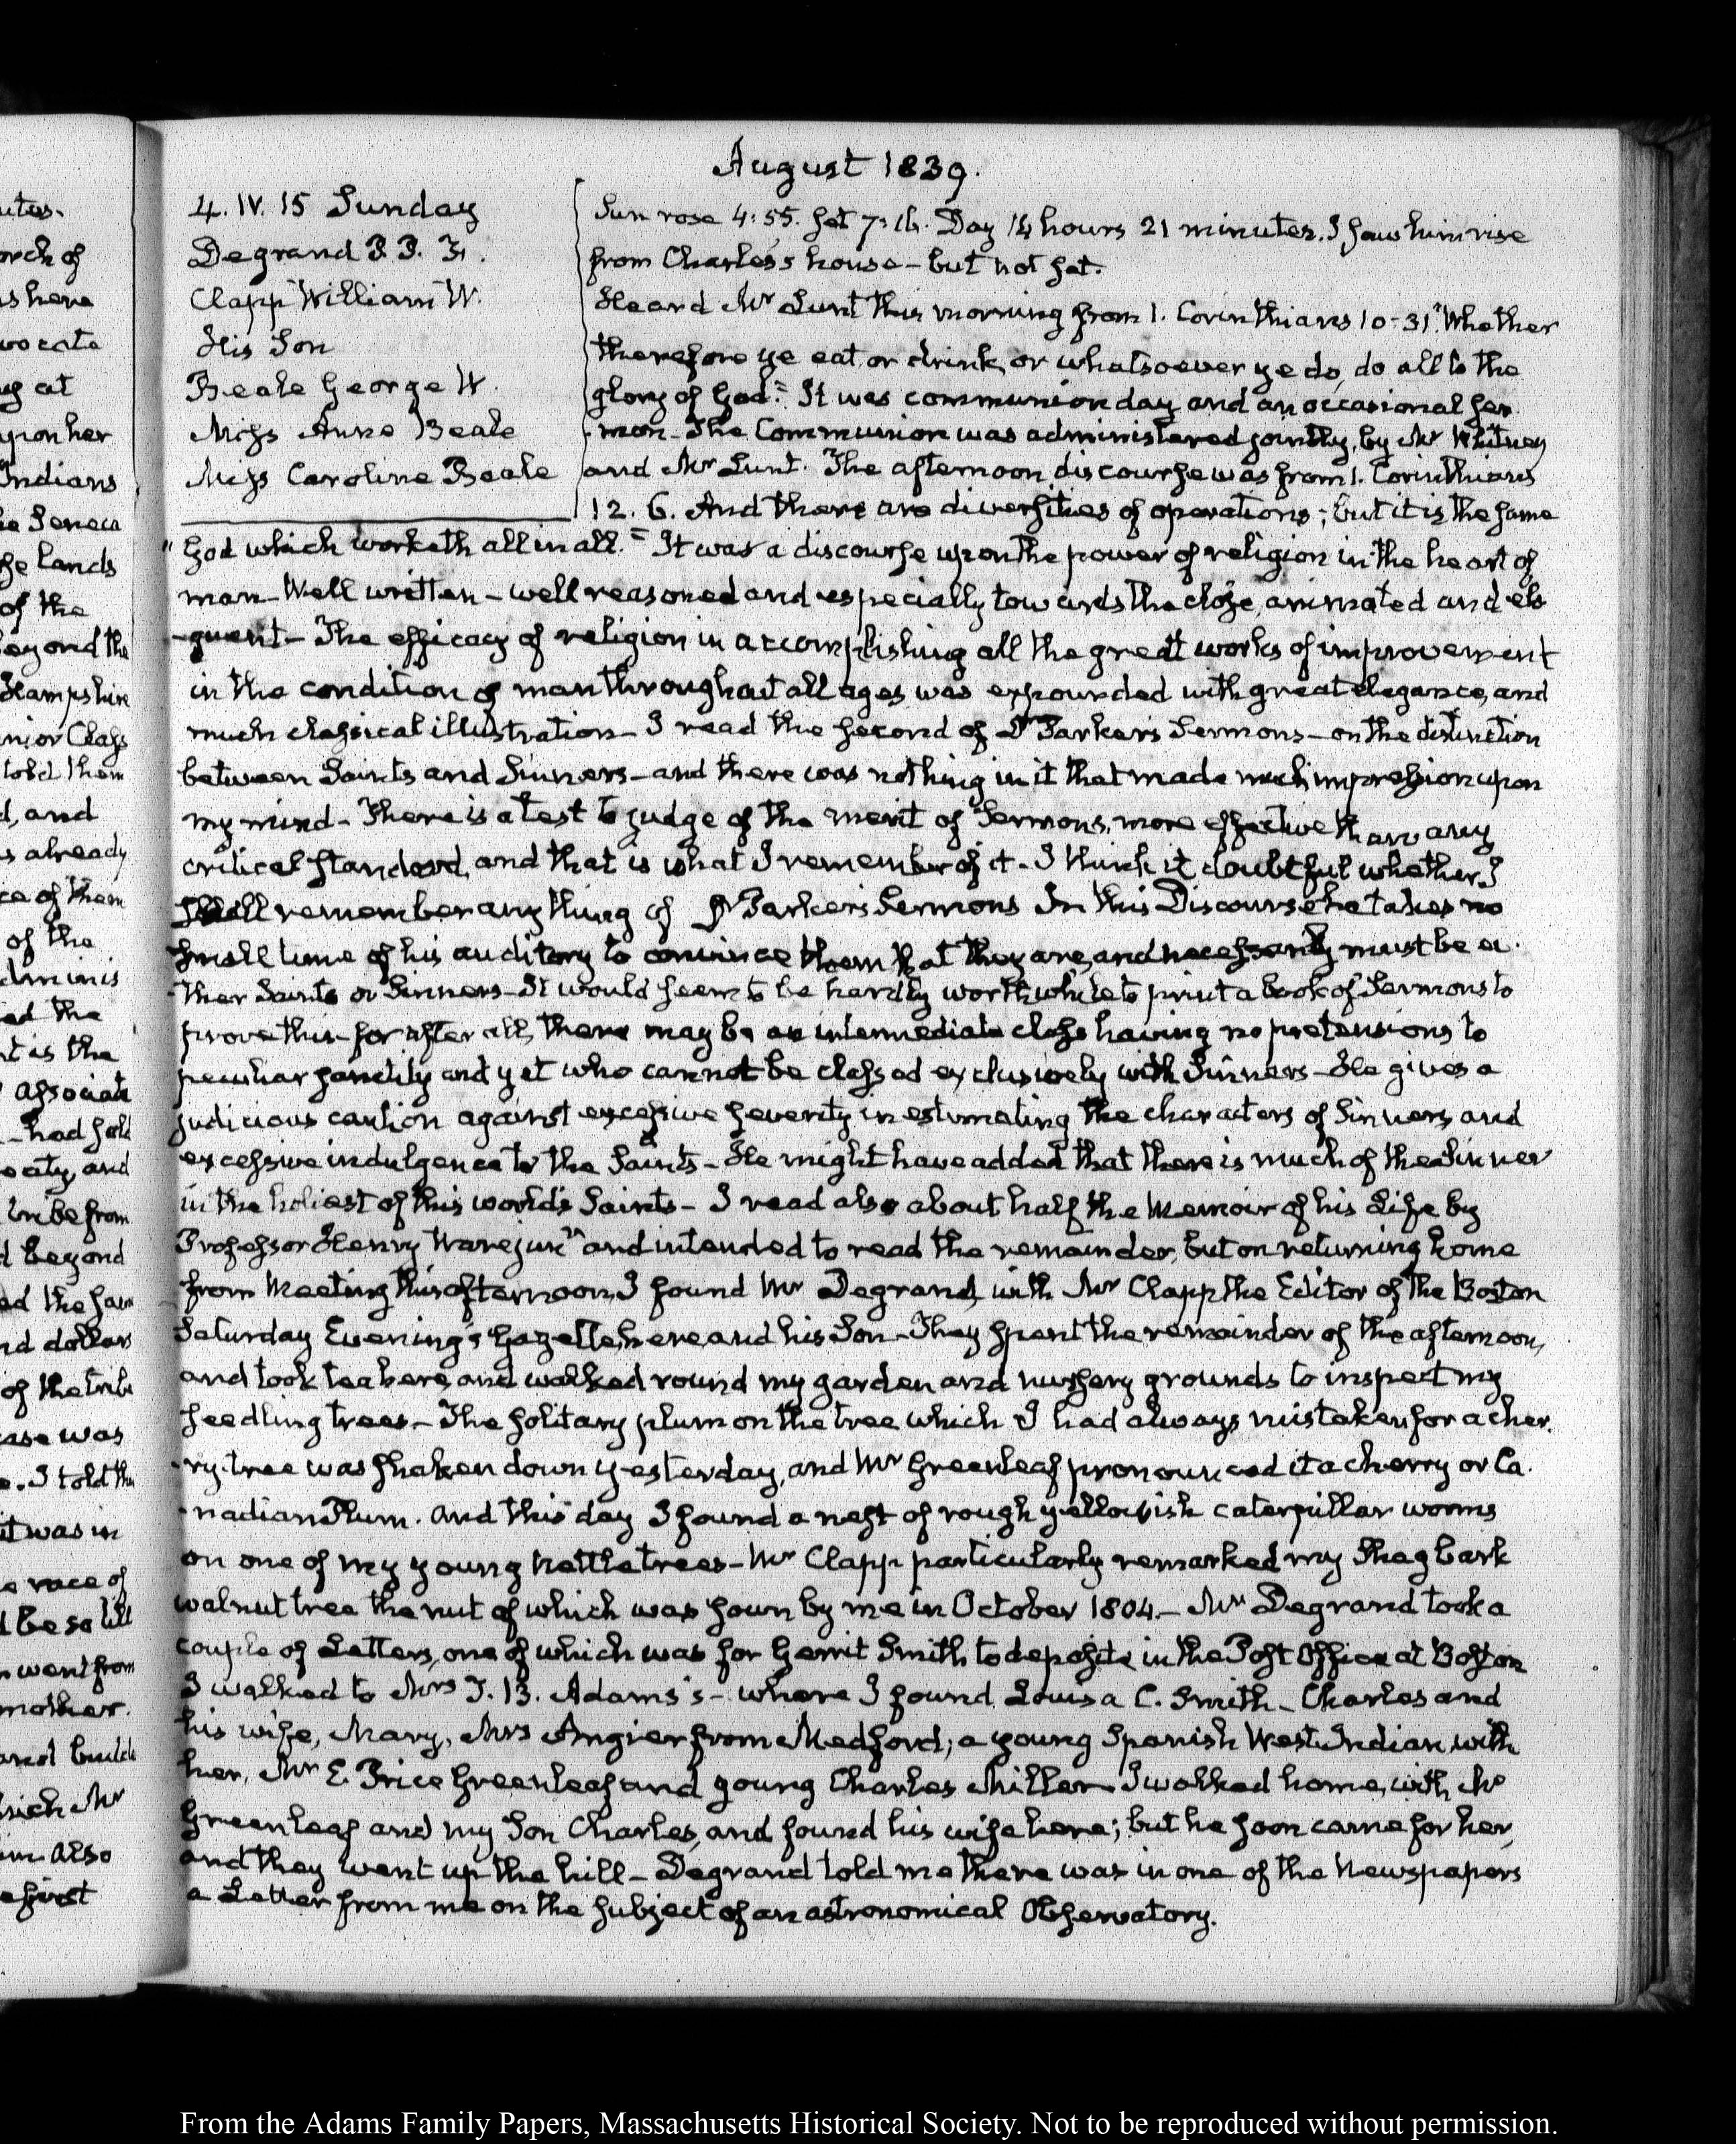 August 1839.
4. IV. 15 Sunday
Degrand P. P. F.
Clapp William W.
His Son
Beale George W.
Miss Anne Beale
Miss Caroline Beale
Sun rose 4:55. Set 7:16. Day 14 hours 21 minutes. I saw him rise
from Charles's house — but not set.
Heard Mr Lunt this morning from 1. Corinthians 10-31. "Whether
therefore ye eat or drink, or whatsoever ye do, do all to the
glory of God." It was communion day and an occasional ser
-mon. The Communion was administered jointly, by Mr Whitney
and Mr Lunt. The afternoon discourse was from 1. Corinthians
12. 6. And there are diversities of operations; but it is the same
"God which worketh all in all." It was a discourse upon the power of religion in the heart of
man — Well written — well reasoned and especially towards the close, animated and elo
-quent — The efficacy of religion in accomplishing all the great works of improvement
in the condition of man throughout all ages was expounded with great elegance, and
much classical illustration — I read the second of Dr Parker's Sermons — on the distinction
between Saints and Sinners — and there was nothing in it that made much impression upon
my mind — There is a test to judge of the merit of Sermons, more effective than any
critical standard, and that is what I remember of it — I think it doubtful whether I
shall remember any thing of Dr Parker's Sermons In this Discourse he takes no
small time of his auditory to convince them that they are, and necessarily must be ei
-ther Saints or Sinners — It would seem to be hardly worth while to print a book of Sermons to
prove this — for after all, there may be an intermediate class having no pretensions to
peculiar sanctity and yet who cannot be classed exclusively with Sinners — He gives a
judicious caution against excessive severity in estimating the characters of Sinners and
excessive indulgence to the Saints — He might have added that there is much of the Sinner
in the holiest of this world's Saints — I read also about half the Memoir of his Life by
Professor Henry Ware junr and intended to read the remainder, but on returning home
from Meeting this afternoon, I found Mr Degrand, with Mr Clapp the Editor of the Boston
Saturday Evening's Gazette, here, and his Son — They spent the remainder of the afternoon,
and took tea here, and walked round my garden and nursery grounds to inspect my
seedling trees — The solitary plum on the tree which I had always mistaken for a cher
-ry tree was shaken down yesterday, and Mr Greenleaf pronounced it a cherry or Ca
-nadian Plum. And this day I found a nest of rough yellowish caterpillar worms
on one of my young nettle trees — Mr Clapp particularly remarked my Shagbark
walnut tree the nut of which was sown by me in October 1804. — Mr Degrand took a
couple of Letters, one of which was for Gerrit Smith to deposite in the Post Office at Boston
I walked to Mrs T. B. Adams's — where I found Louisa C. Smith — Charles and
his wife, Mary, Mrs Angier from Medford; a young Spanish West-Indian, with
her, Mr E. Price Greenleaf and young Charles Miller — I walked home, with Mr
Greenleaf and my Son Charles, and found his wife here; but he soon came for her,
and they went up the hill — Degrand told me there was in one of the Newspapers
a Letter from me on the subject of an astronomical Observatory.
From the Adams Family Papers, Massachusetts Historical Society. Not to be reproduced without permission.